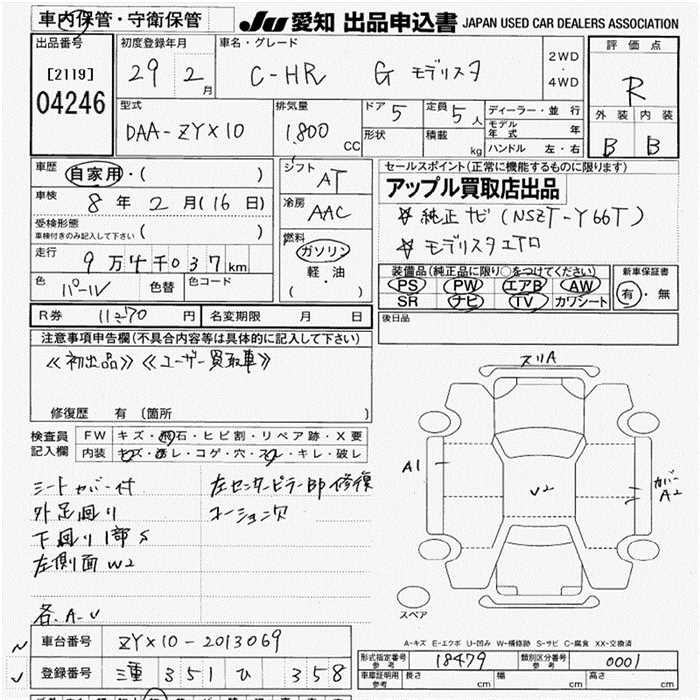 車内保管・守衛保管 JU 愛知 出品申込書 JAPAN USED CAR DEALERS ASSOCIATION
出品番号 [2119] 04246
初度登録年月 29 2月
車名・グレード C-HR G モデリスタ 2WD・4WD
評価点 R
外装 B 内装 B
型式 DAA-ZYX10
排気量 1800 CC
ドア 5 形状
定員 5人 積載 kg
ディーラー・並行
モデル年式 年
ハンドル 左・右
車歴 自家用・( )
車検 8年2月(16日)
受検形態 車検付きのみ記入して下さい ( )
走行 9万4千037km
色 パール 色替 色コード
シフト AT
冷房 AAC
燃料 ガソリン 軽・油 ( )
セールスポイント(正常に機能するものに限ります)
アップル買取店出品
☆ 純正ナビ(NSZT-Y66T)
☆ モデリスタエアロ
装備品(純正品に限り○をつけてください)
PS PW エアB AW
SR ナビ TV カワシート
新車保証書 有・無
R券 11270 円 名変期限 月 日
後日品
注意事項申告欄(不具合内容等は具体的に記入して下さい)
≪初出品≫ ≪ユーザー買取車≫
修復歴 有 〔箇所 〕
検査員記入欄
FW キズ・飛石・ヒビ割・リペア跡・X要
内装 キズ・汚レ・コゲ・穴・スレ・キレ・破レ
シートカバー付
外足廻り
下廻り1部S
左側面W2
各.A-U
左センターピラー部修復
コーション欠
スリA
A1
V2
カバーA2
スペア
A-キズ E-エクボ U-凹み W-補修跡 S-サビ C-腐食 XX-交換済
車台番号 ZYX10-2013069
登録番号 三重 351 ひ 358
形式指定番号 参考 18479 類別区分番号 参考 0001
車庫証明用 参考 長さ cm 幅 cm 高さ cm